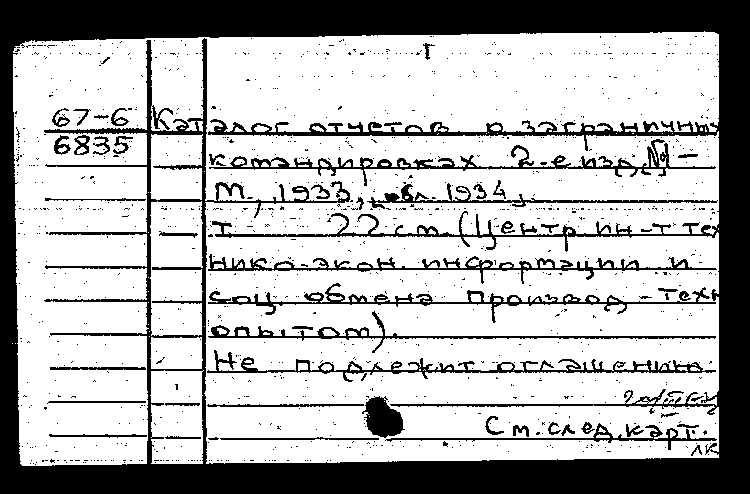 Г
67-6 Каталог отчетов о заграничных
6835 командировках. 2-е изд. № —
М., 1933, обл. 1934,
т 22 см. (Центр ин-т тех
нико-экон. информации и
соц. обмена производ-техн
опытом).
Не подлежит оглашению.
См. след. карт.
ЛК